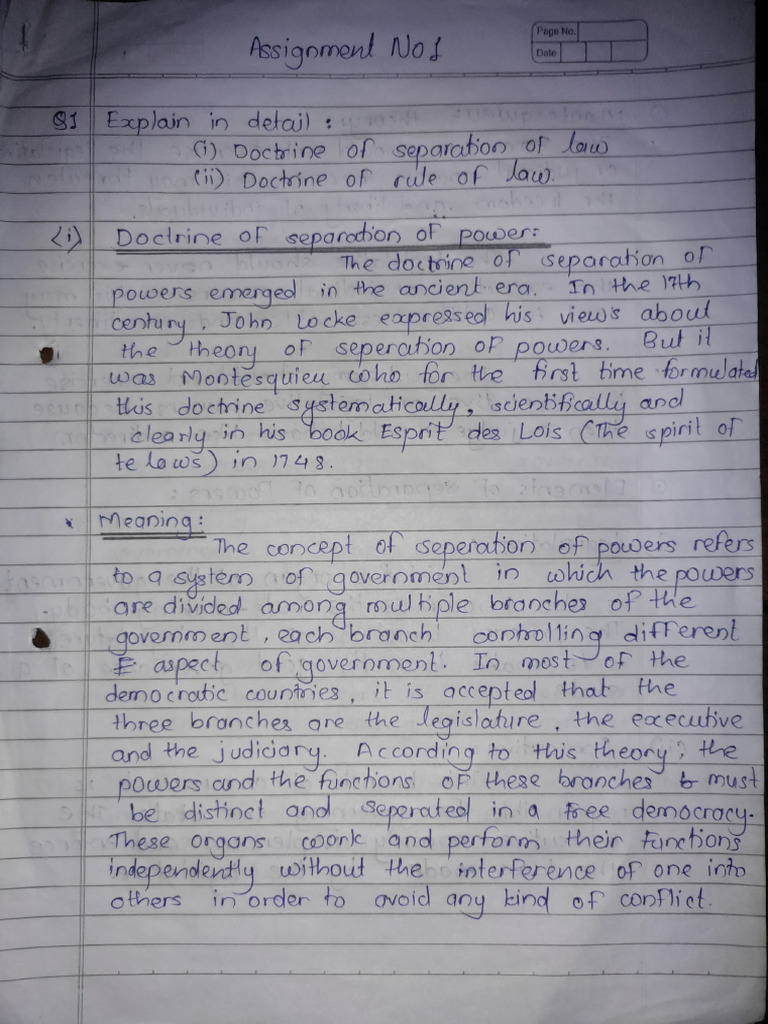 Assignment No 1
Page No.
Date
Q1 Explain in detail :
(i) Doctrine of separation of law
(ii) Doctrine of rule of law.
(i) Doctrine of separation of power:
The doctrine of separation of
powers emerged in the ancient era. In the 17th
century, John Locke expressed his views about
the theory of seperation of powers. But it
was Montesquieu who for the first time formulated
this doctrine systematically, scientifically and
clearly in his book Esprit des Lois (The spirit of
te laws) in 1748.
* Meaning:
The concept of seperation of powers refers
to a system of government in which the powers
are divided among multiple branches of the
government, each branch controlling different
aspect of government. In most of the
democratic countries, it is accepted that the
three branches are the legislature, the executive
and the judiciary. According to this theory, the
powers and the functions of these branches must
be distinct and seperated in a free democracy.
These organs work and perform their functions
independently without the interference of one into
others in order to avoid any kind of conflict.